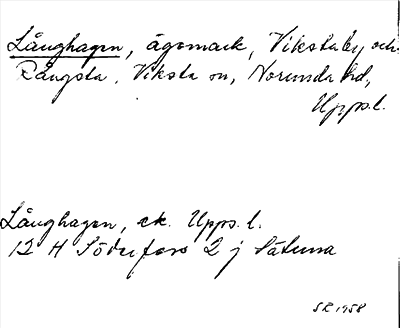 Långhagen, ägomark, Vikstaby och
Rångsta, Viksta sn, Norunda hd,
Upps.l.
Långhagen, ek. Upps.l.
12 H Söderfors 2 j Sätuna
SR 1958